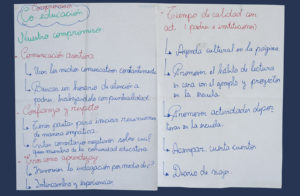 Compromiso
La educación
Nuestro compromiso
Comunicación asertiva
↳ Usar los medios comunicativos constantemente
↳ Buscar un horario de atención a
padres. Atendiéndolo con puntualidad.
Confianza y respeto
↳ Tener pautas para iniciar reuniones
de manera empática
↳ Evitar comentarios negativos sobre cual
quier miembro de la comunidad educativa
aprendizaje
↳ Promover la indagación por medio de
↳ Intercambio y experiencias
* Tiempo de calidad con
act. (padres e institución)
↳ Agenda cultural en la página
↳ Promover el hábito de lectura
en casa con el ejemplo y proyectos
en la escuela.
↳ Promover actividades depor
tivas en la escuela.
↳ Acampar, cuenta cuentos
↳ Diario de viaje.